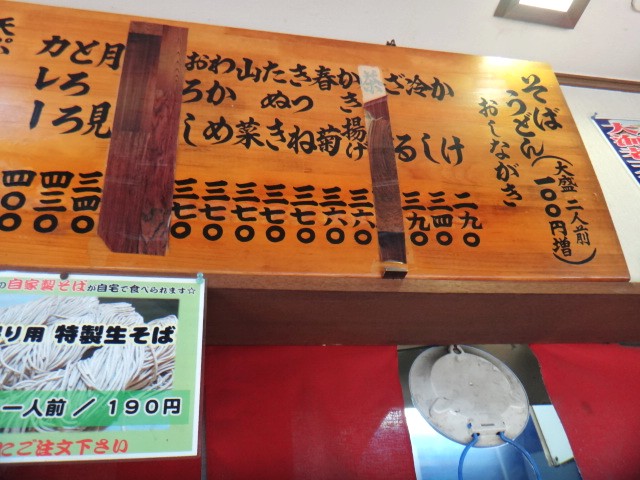 そばうどん
おしながき
(大盛 二人前 一〇〇円増)
かけ 二九〇
冷し 三四〇
ざる 三九〇
かき揚げ 三六〇
春菊 三六〇
きつね 三七〇
たぬき 三七〇
山菜 三七〇
わかめ 三七〇
おろし 三七〇
月見 三四〇
とろろ 四三〇
カレー 四〇〇
の自家製そばが自宅で食べられます☆
り用 特製生そば
一人前 / 190円
にご注文下さい